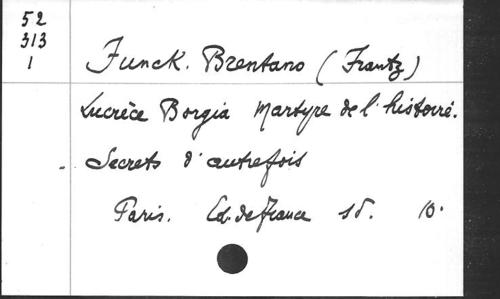 52
313
1
Funck. Brentano (Frantz)
Lucrèce Borgia Martyre de l'histoire.
Secrets d'autrefois
Paris. Ed. de France sd. 10.